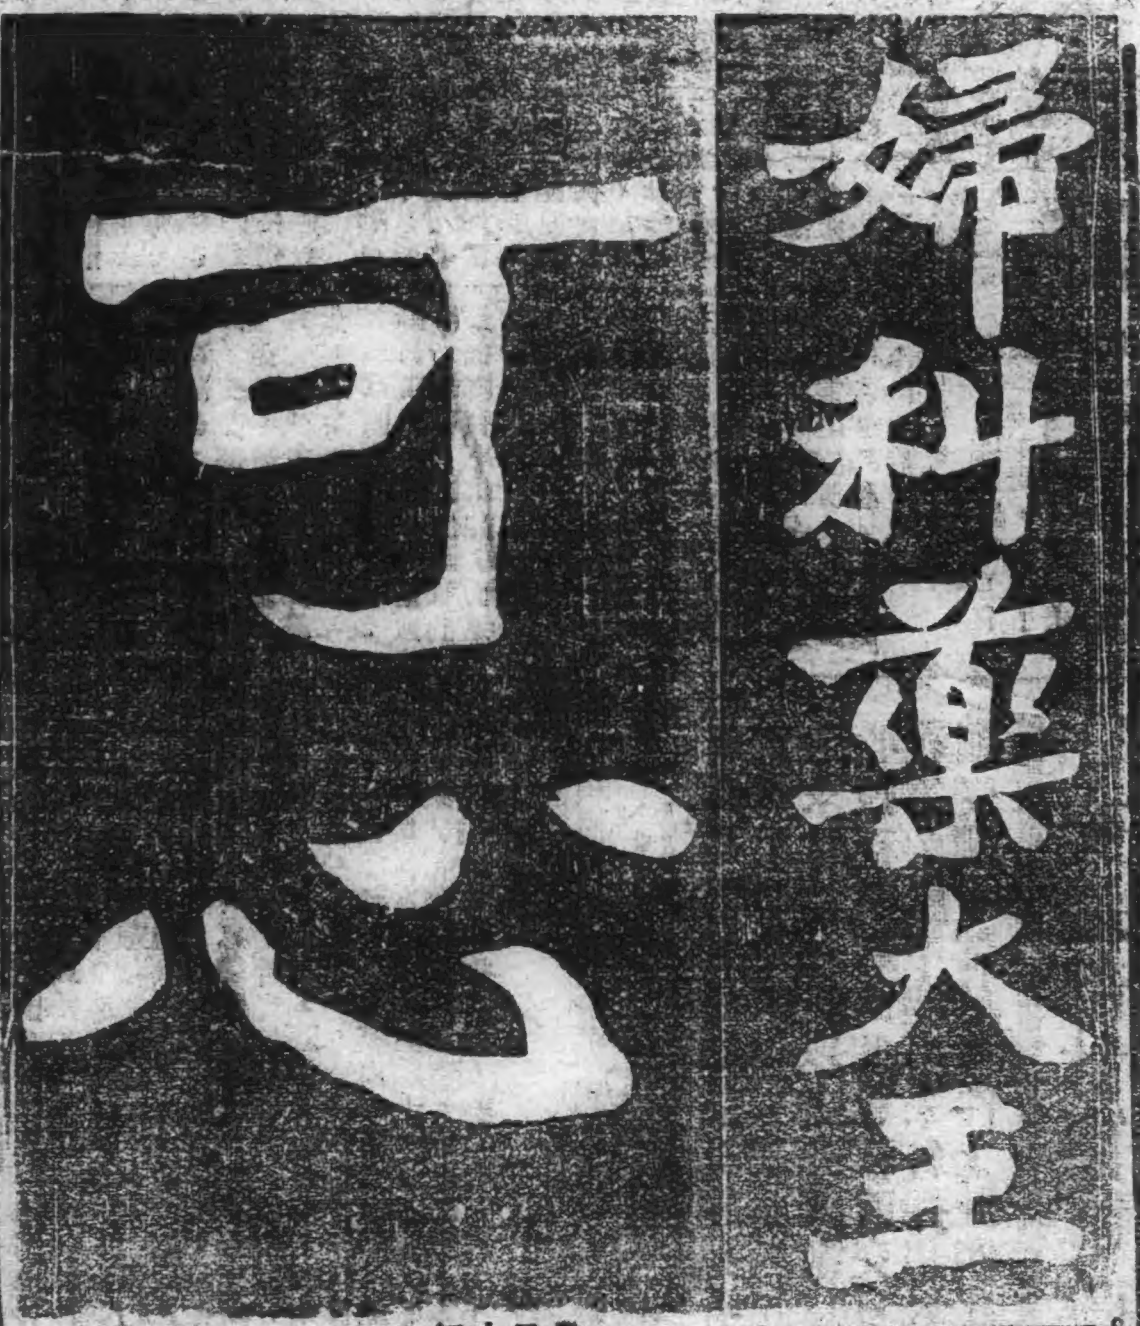 婦科藥大王
可心